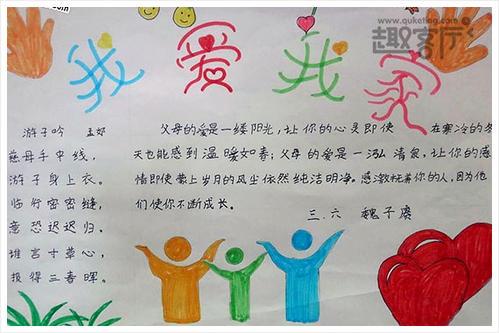 www.quketing.com
趣客厅
我爱我家
游子吟 孟郊
慈母手中线,
游子身上衣。
临行密密缝,
意恐迟迟归。
谁言寸草心,
报得三春晖。
父母的爱是一缕阳光,让你的心灵即使 在寒冷的冬
天也能感到温暖如春;父母的爱是一泓清泉,让你的感
情即使蒙上岁月的风尘依然纯洁明净。感激抚养你的人,因为他
们使你不断成长。
三.六 魏子